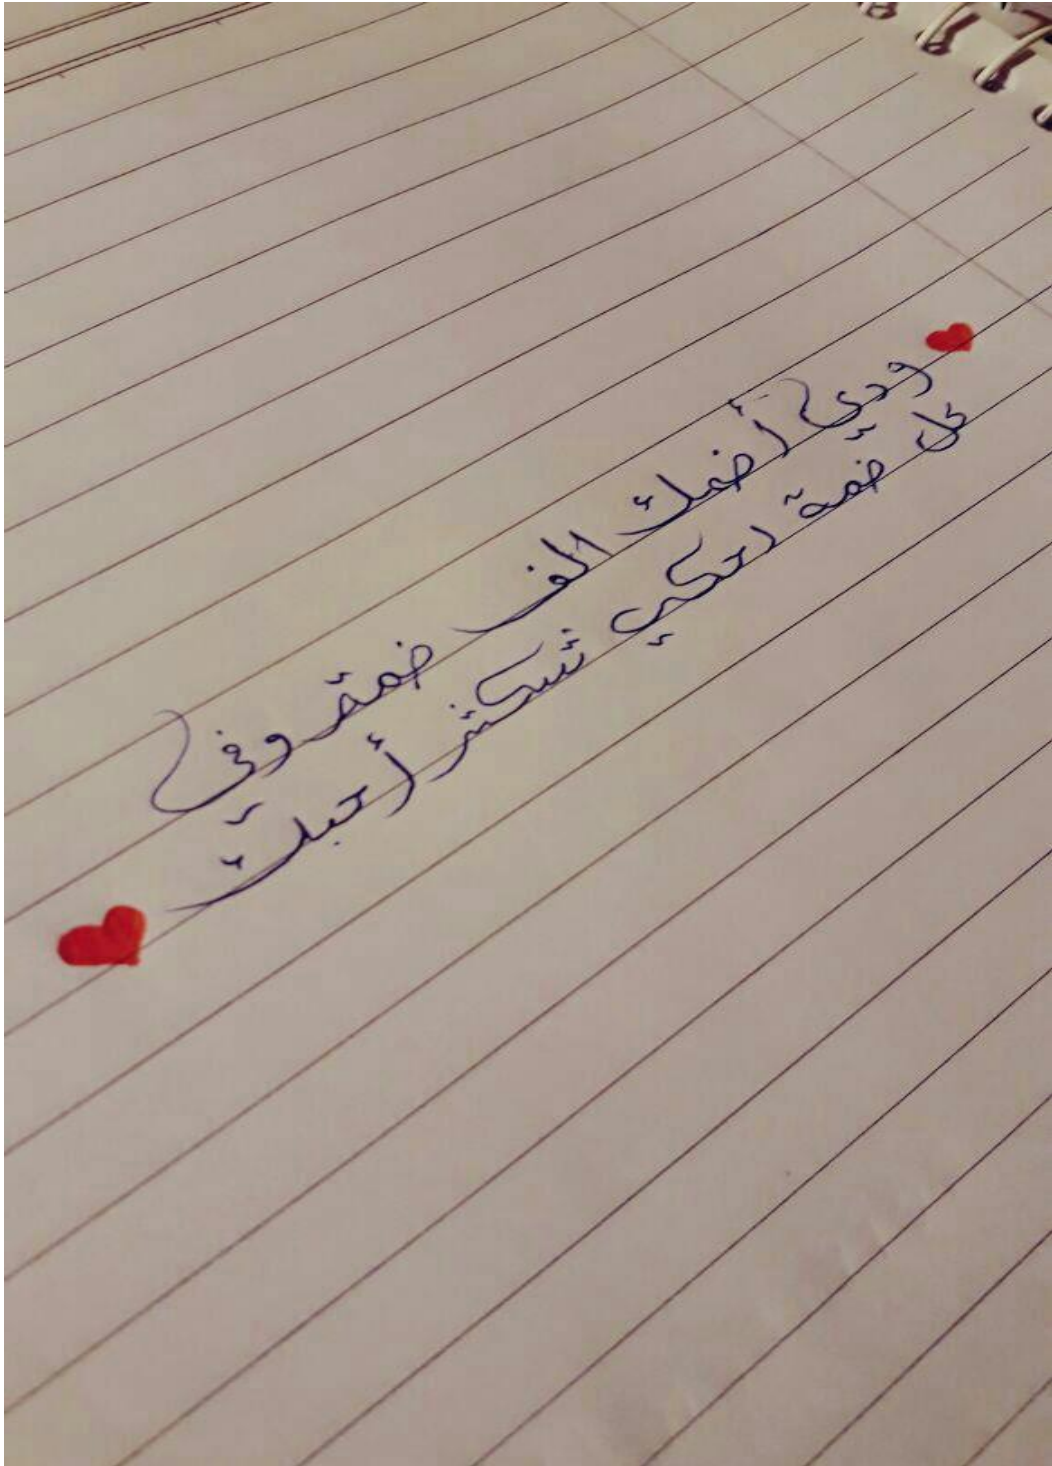 ودي أضمك الف ضمة وفي
كل ضمة احكي شكثر أحبك